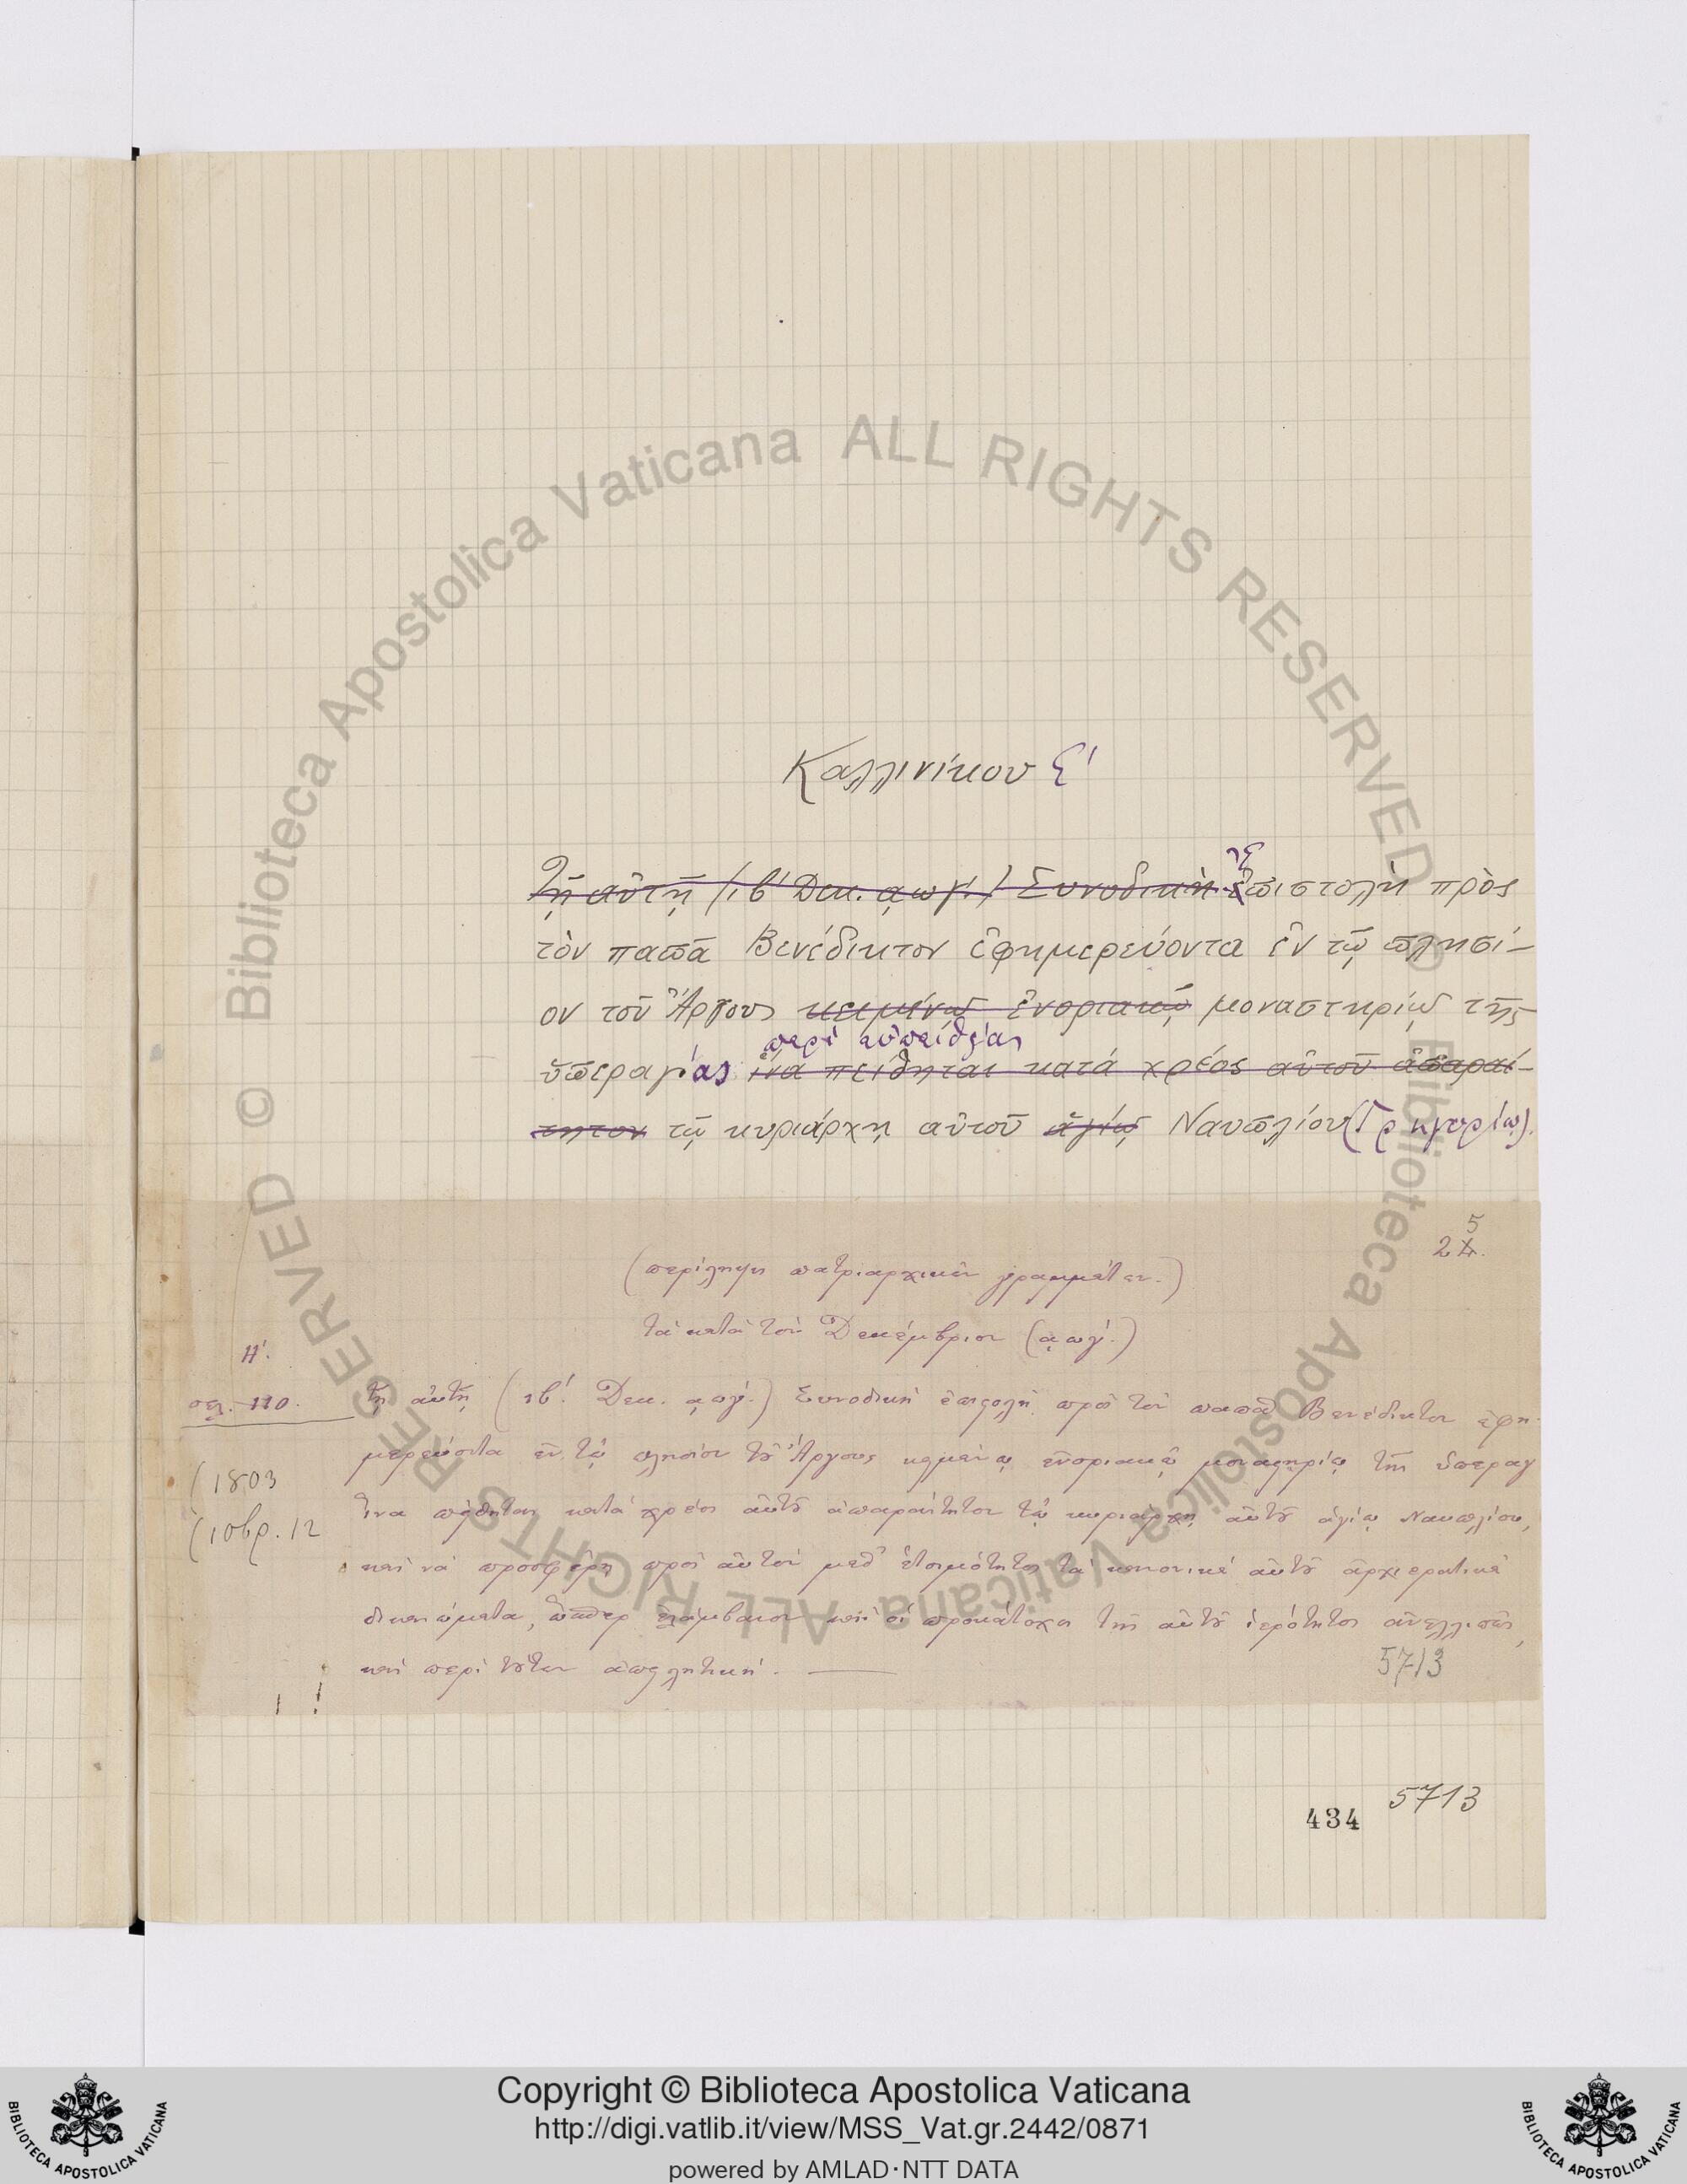 Καλλινίκου Ε'
Τῇ αὐτῇ (ιβ' Δεκ. ͵αωγ'.) Συνοδικὴ Ἐπιστολὴ πρὸς
τὸν παπᾶ Βενέδικτον ἐφημερεύοντα ἐν τῷ πλησί-
ον τοῦ Ἄργους κειμένῳ ἐνοριακῷ μοναστηρίῳ τῆς
περὶ εὐπειθείας
ὑπεραγίας ἵνα πείθηται κατὰ χρέος αὐτοῦ ἀπαραί-
τητον τῷ κυριάρχῃ αὐτοῦ ἁγίῳ Ναυπλίου (Γρηγορίῳ).
5
24.
(περίληψις πατριαρχικῶν γραμμάτων.)
τὰ κατὰ τὸν Δεκέμβριον (͵αωγ'.)
Η'.
σελ. 110. τῇ αὐτῇ (ιβ'. Δεκ. ͵αωγ'.) Συνοδικὴ ἐπιστολὴ πρὸς τὸν παπᾶ Βενέδικτον ἐφη-
μερεύοντα ἐν τῷ πλησίον τοῦ Ἄργους κειμένῳ ἐνοριακῷ μοναστηρίῳ τῆς ὑπεραγ
(1803 ἵνα πείθηται κατὰ χρέος αὐτοῦ ἀπαραίτητον τῷ κυριάρχῃ αὐτοῦ ἁγίῳ Ναυπλίου,
(10βρ. 12 καὶ νὰ προσφέρῃ πρὸς αὐτὸν μεθ' ἑτοιμότητος τὰ κανονικὰ αὐτοῦ ἀρχιερατικὰ
δικαιώματα, ἅπερ ἐλάμβανον καὶ οἱ προκάτοχοι τῆς αὐτοῦ ἱερότητος ἀνελλιπῶς,
καὶ περὶ τούτων ἀπειλητική.
5713
5713
434
Copyright © Biblioteca Apostolica Vaticana
http://digi.vatlib.it/view/MSS_Vat.gr.2442/0871
powered by AMLAD·NTT DATA
BIBLIOTECA APOSTOLICA VATICANA
BIBLIOTECA APOSTOLICA VATICANA
© Biblioteca Apostolica Vaticana ALL RIGHTS RESERVED
© Biblioteca Apostolica Vaticana ALL RIGHTS RESERVED